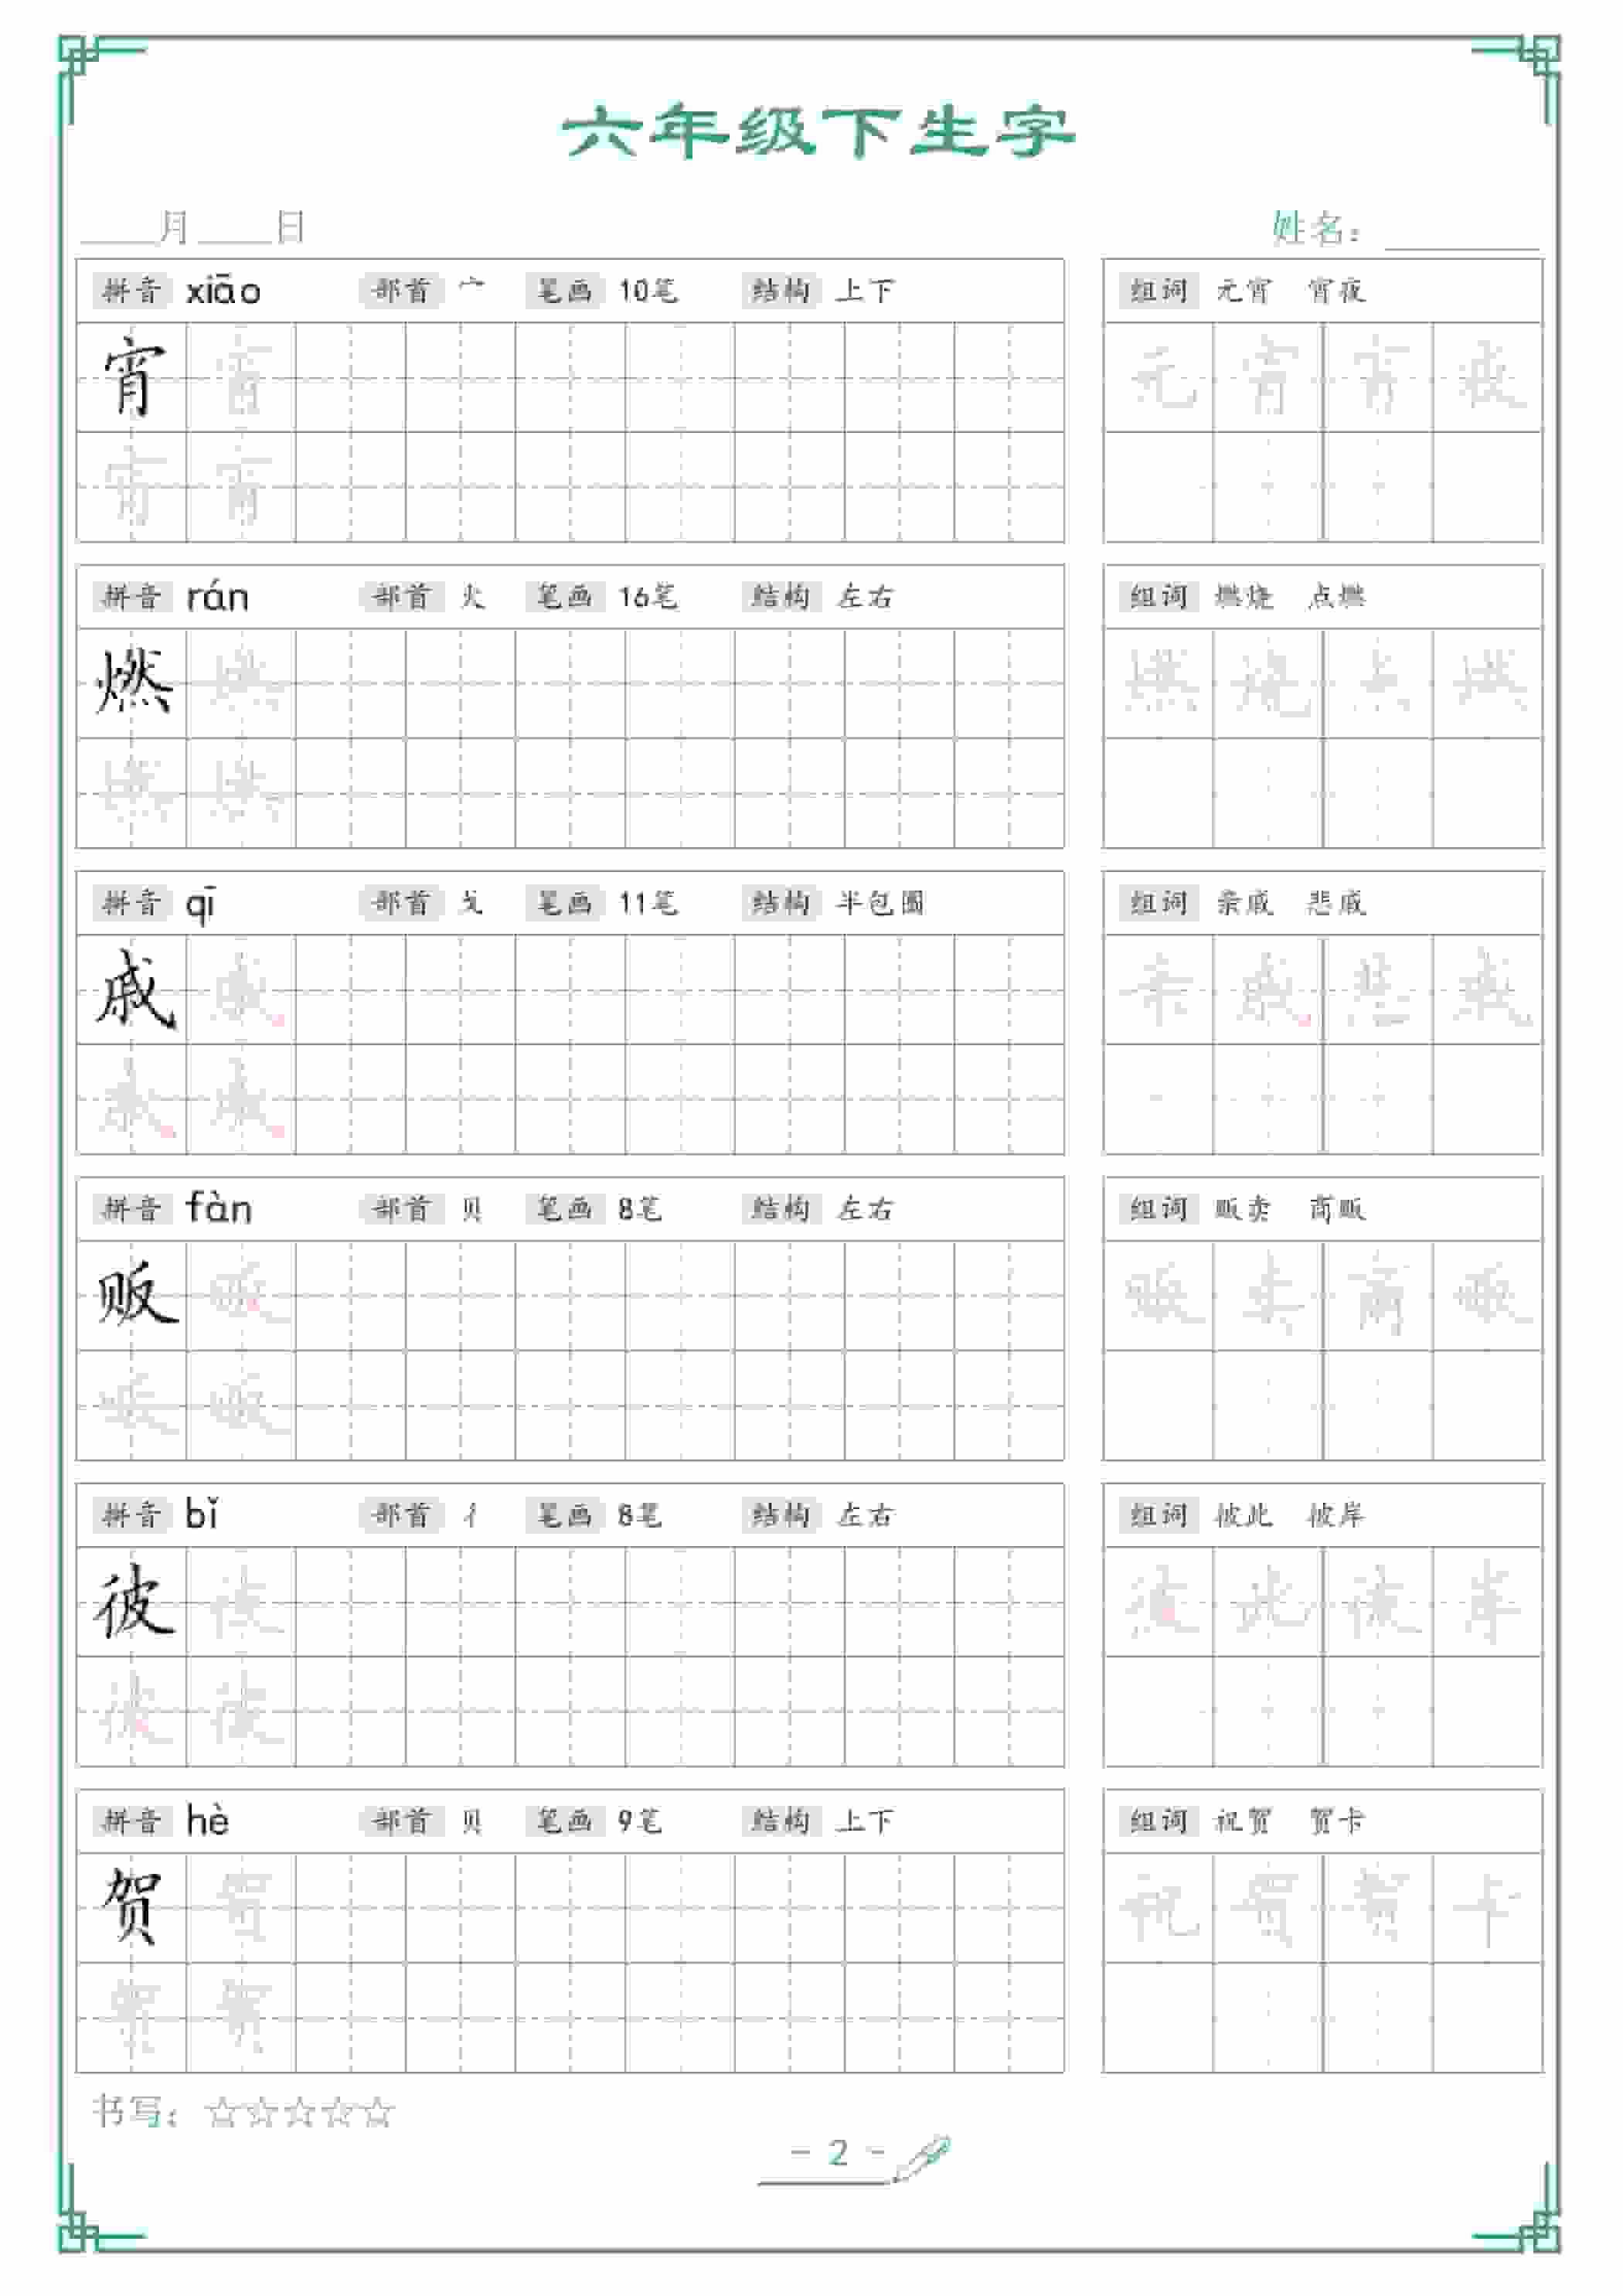 六年级下生字
____月____日 姓名：________
拼音 xiāo 部首 宀 笔画 10笔 结构 上下 组词 元宵 宵夜
宵 宵 元 宵 宵 夜
宵 宵
拼音 rán 部首 火 笔画 16笔 结构 左右 组词 燃烧 点燃
燃 燃 燃 烧 点 燃
燃 燃
拼音 qī 部首 戈 笔画 11笔 结构 半包围 组词 亲戚 悲戚
戚 戚 亲 戚 悲 戚
戚 戚
拼音 fàn 部首 贝 笔画 8笔 结构 左右 组词 贩卖 商贩
贩 贩 贩 卖 商 贩
贩 贩
拼音 bǐ 部首 彳 笔画 8笔 结构 左右 组词 彼此 彼岸
彼 彼 彼 此 彼 岸
彼 彼
拼音 hè 部首 贝 笔画 9笔 结构 上下 组词 祝贺 贺卡
贺 贺 祝 贺 贺 卡
贺 贺
书写：☆☆☆☆☆
- 2 -